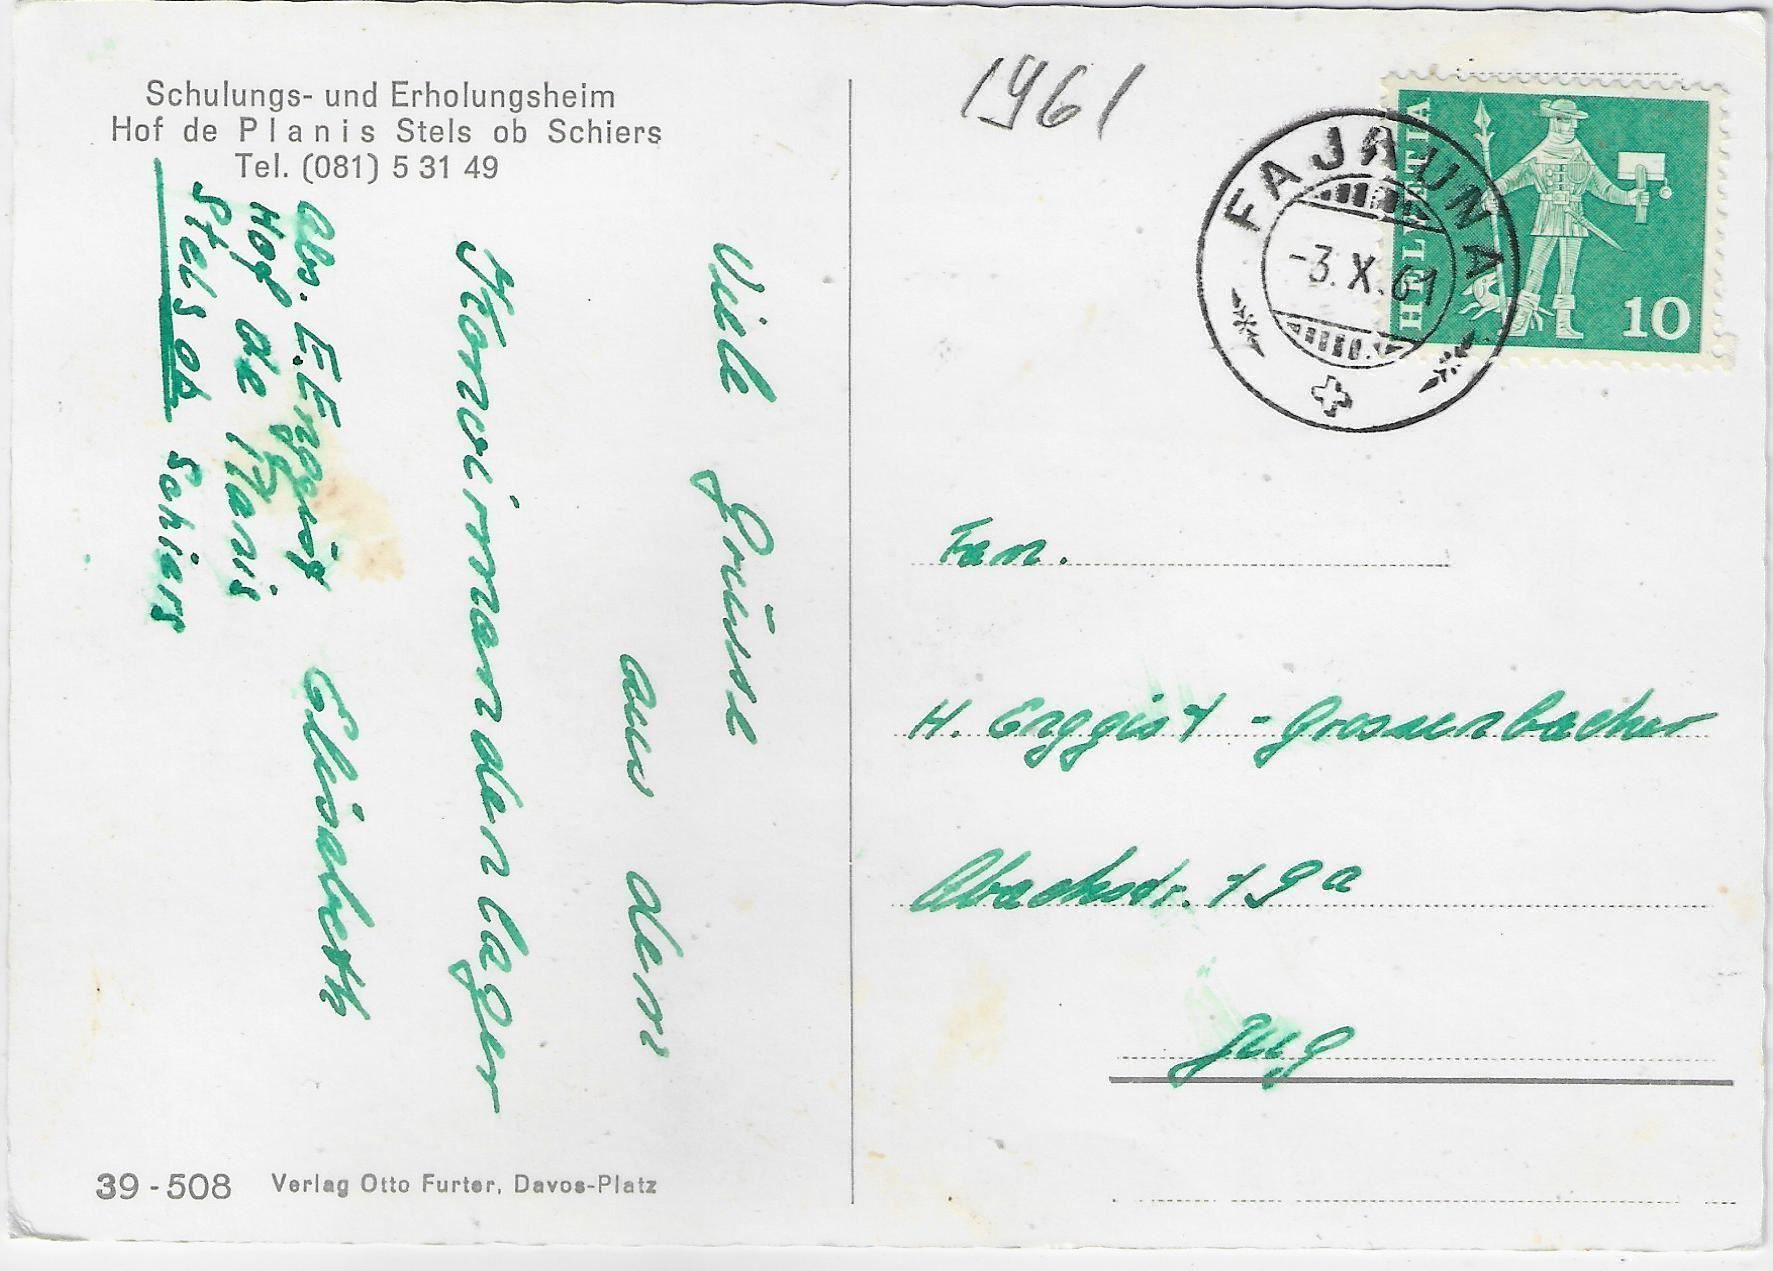 Schulungs- und Erholungsheim
Hof de Planis Stels ob Schiers
Tel. (081) 5 31 49
1961
FAJAUNA
-3.X.61
HELVETIA
10
Viele Grüsse
aus dem
Konfirmandenlager
Elisabeth
Abs. E.
Hof de Planis
Stels ob Schiers
Fam.
H. Erggist - Grossenbacher
Abachstr. 19a
Zug
39-508 Verlag Otto Furter, Davos-Platz